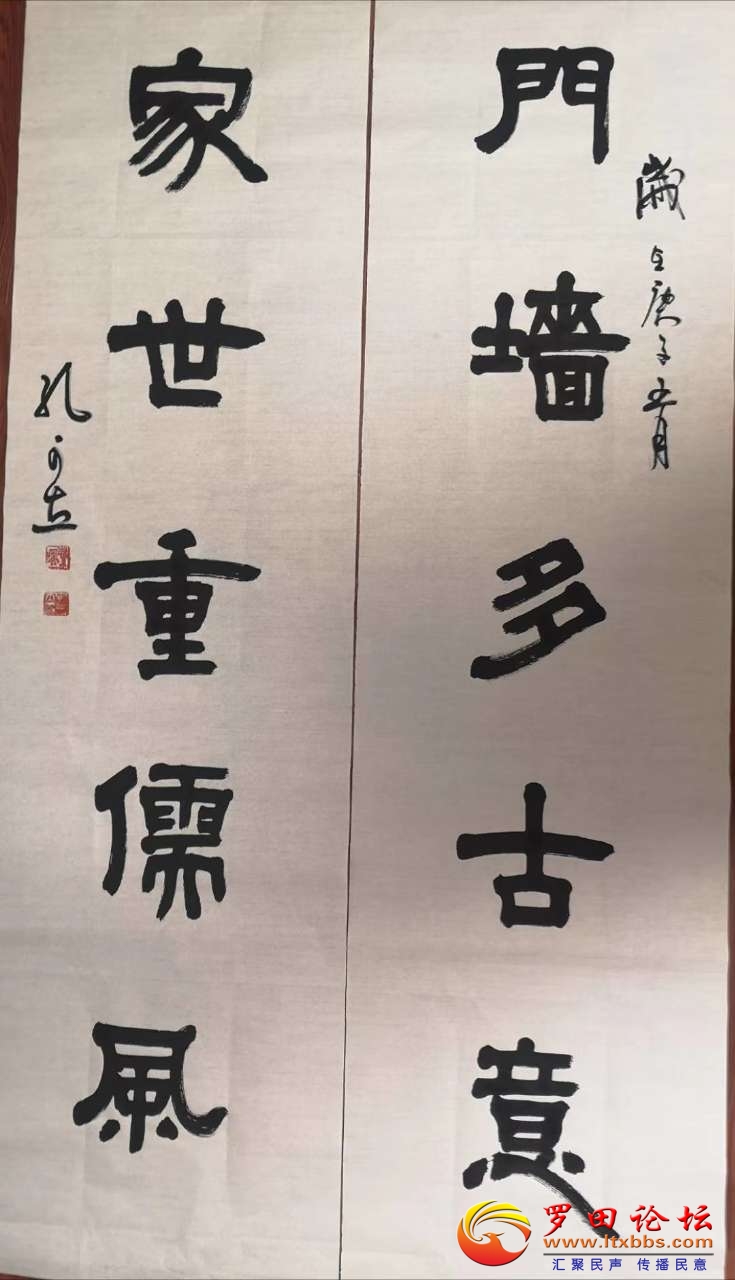 門墻多古意
歲在庚子五月
家世重儒風
孔可立
罗田论坛
www.ltxbbs.com
汇聚民声 传播民意